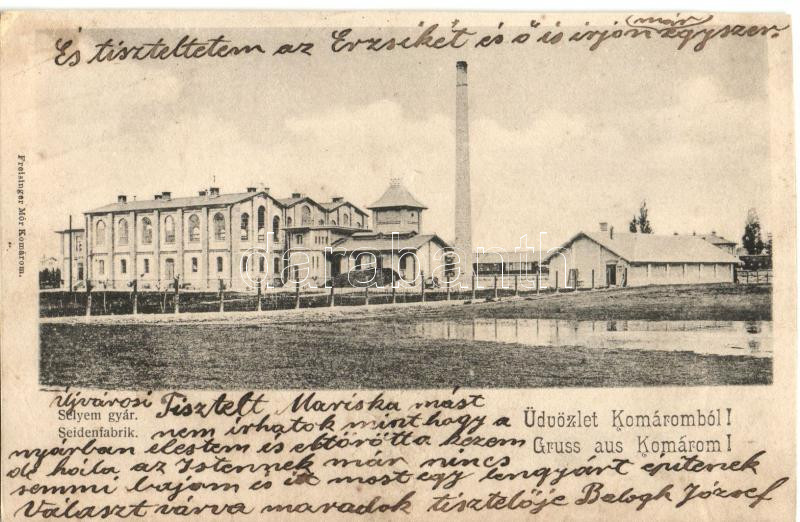 És tiszteltetem az Erzsikét és ő is irjon már egyszer.
Freisinger Mór Komárom.
darabanth.com
Újvárosi
Selyem gyár.
Seidenfabrik.
Üdvözlet Komáromból!
Gruss aus Komárom!
Tisztelt Mariska mást
nem irhatok mint hogy a
nyárban elestem és eltörötta kezem
de hóila az Istennek már nincs
semmi bajom és itt most egy lengyárt epitenek
Választ várva maradok tisztelője Balogh József